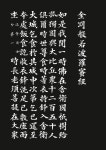 金剛般若波羅蜜經
如是我聞一時佛在舍衛國祇樹給
孤獨園與大比丘眾千二百五十人
俱爾時世尊食時著衣持鉢入舍衛
大城乞食於其城中次第乞已還至
本處飯食訖收衣鉢洗足已敷座而
坐